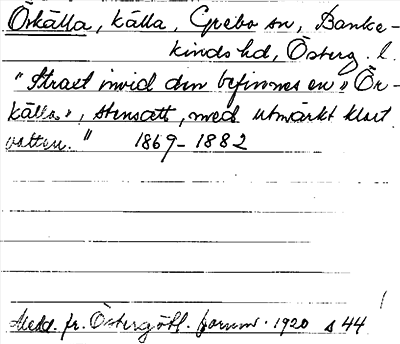 Örkälla, källa, Grebo sn, Banke-
kinds hd, Österg. l.
"Straxt invid den befinnes en "Ör-
källa", stensatt, med utmärkt klart
vatten." 1869-1882
Medd. fr. Östergötl. fornm. 1920 s 44